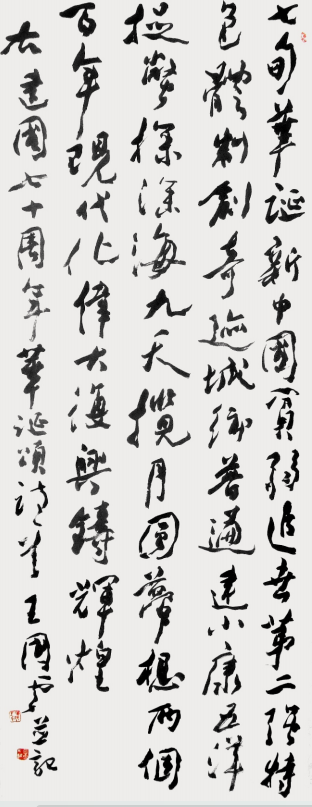 七旬華誕新中國貧弱追世第二強特
色體制創奇迹城鄉普遍建小康五洋
捉鱉探深海九天攬月圓夢想兩個
百年現代化偉大復興鑄輝煌
右建國七十周年華誕頌詩一首王國並記